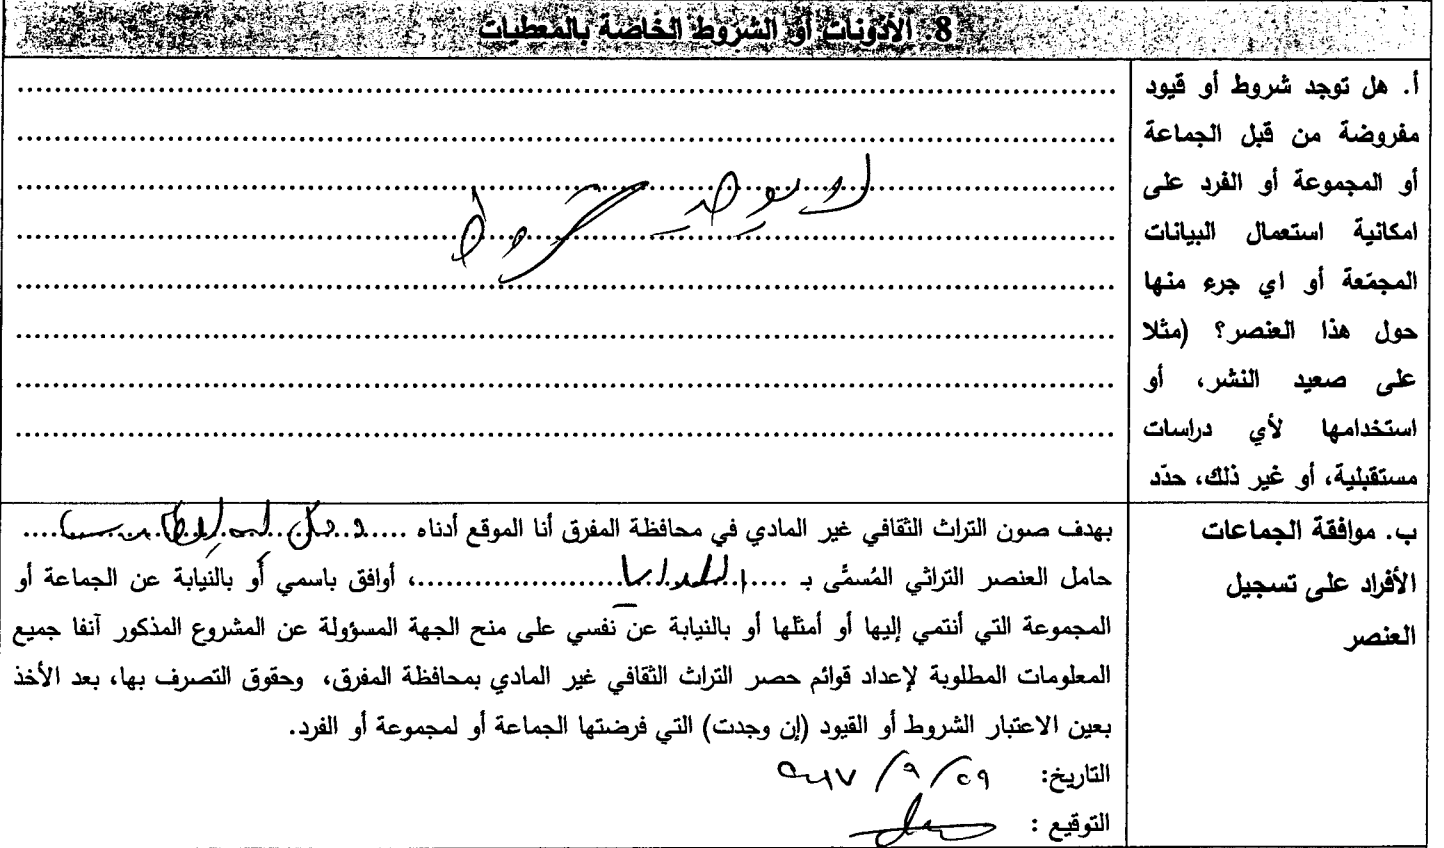 8. الأذونات أو الشروط الخاصة بالمعطيات
أ. هل توجد شروط أو قيود
مفروضة من قبل الجماعة
أو المجموعة أو الفرد على
امكانية استعمال البيانات
المجمّعة أو اي جرء منها
حول هذا العنصر؟ (مثلا
على صعيد النشر، أو
استخدامها لأي دراسات
مستقبلية، أو غير ذلك، حدّد
لا يوجد شروط
ب. موافقة الجماعات
الأفراد على تسجيل
العنصر
بهدف صون التراث الثقافي غير المادي في محافظة المفرق أنا الموقع أدناه
حامل العنصر التراثي المُسمَّى بـ ، أوافق باسمي أو بالنيابة عن الجماعة أو
المجموعة التي أنتمي إليها أو أمثلها أو بالنيابة عن نفسي على منح الجهة المسؤولة عن المشروع المذكور آنفا جميع
المعلومات المطلوبة لإعداد قوائم حصر التراث الثقافي غير المادي بمحافظة المفرق، وحقوق التصرف بها، بعد الأخذ
بعين الاعتبار الشروط أو القيود (إن وجدت) التي فرضتها الجماعة أو لمجموعة أو الفرد.
التاريخ: ٢٩/ ٩/ ٢٠١٧
التوقيع :